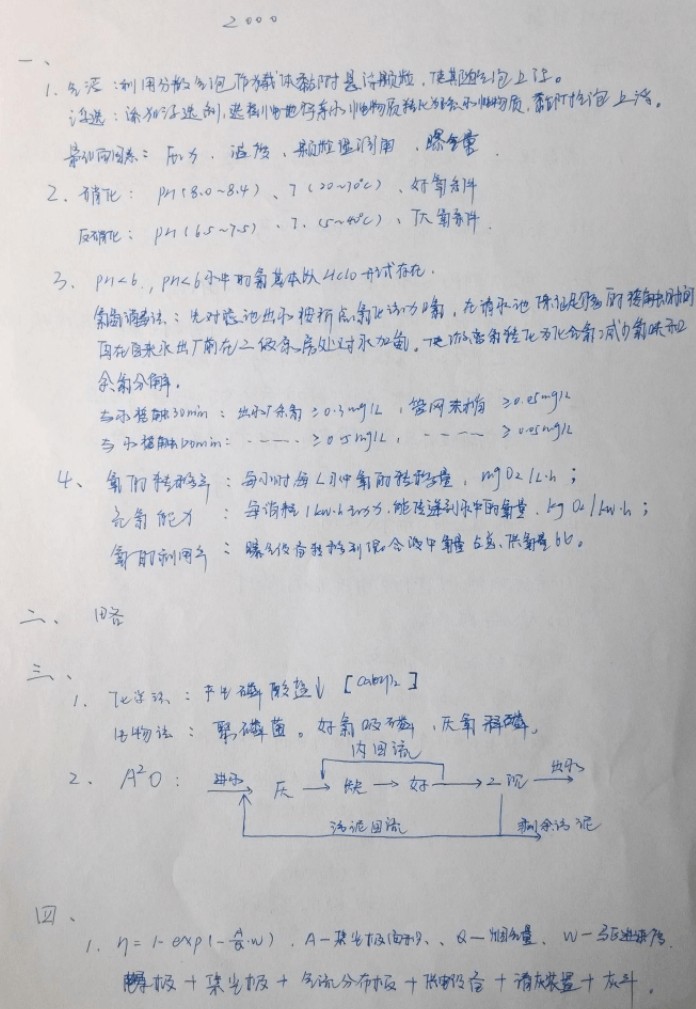 2000
一、
1. 气浮：利用分散气泡作为载体黏附悬浮颗粒，使其随气泡上浮。
浮选：添加浮选剂，选择性地将亲水性物质转化为疏水性物质，黏附气泡上浮。
影响因素：压力、温度、颗粒湿润角、曝气量
2、硝化：PH（8.0~8.4）、T（20~30℃）、好氧条件
反硝化：PH（6.5~7.5）、T（5~40℃）、厌氧条件
3、PH<6，PH<6水中的氯基本以HClO形式存在.
氯氨消毒法：先对滤池出水按折点氯化法加氯，在清水池保证足够的接触时间
再在自来水出厂前在二级泵房处对水加氨，使游离氯转化为化合氯，减少氯味和
余氯分解.
与水接触30min：出水厂余氯 ≥0.3mg/L，管网末梢 ≥0.05mg/L
与水接触120min：----- ≥0.5mg/L，---- ≥0.05mg/L
4、氧的转移率：每小时每L水中氧的转移量，mgO2/L·h；
充氧能力：每消耗1kw·h动力，能传递到水中的氧量，kgO2/kw·h；
氧的利用率：曝气设备转移到混合液中氧量占总供氧量%。
二、略
三、
1. 化学法：产生磷酸盐↓
生物法：聚磷菌。好氧吸磷，厌氧释磷。
内回流
2. A²O：进水 厌 → 缺 → 好 → 二沉 出水
污泥回流 剩余污泥
四、
1. η=1-exp(-A/Q·W)，A—集尘极面积、Q—烟气量、W—驱进速度.
电晕极 + 集尘极 + 气流分布板 + 供电设备 + 清灰装置 + 灰斗.